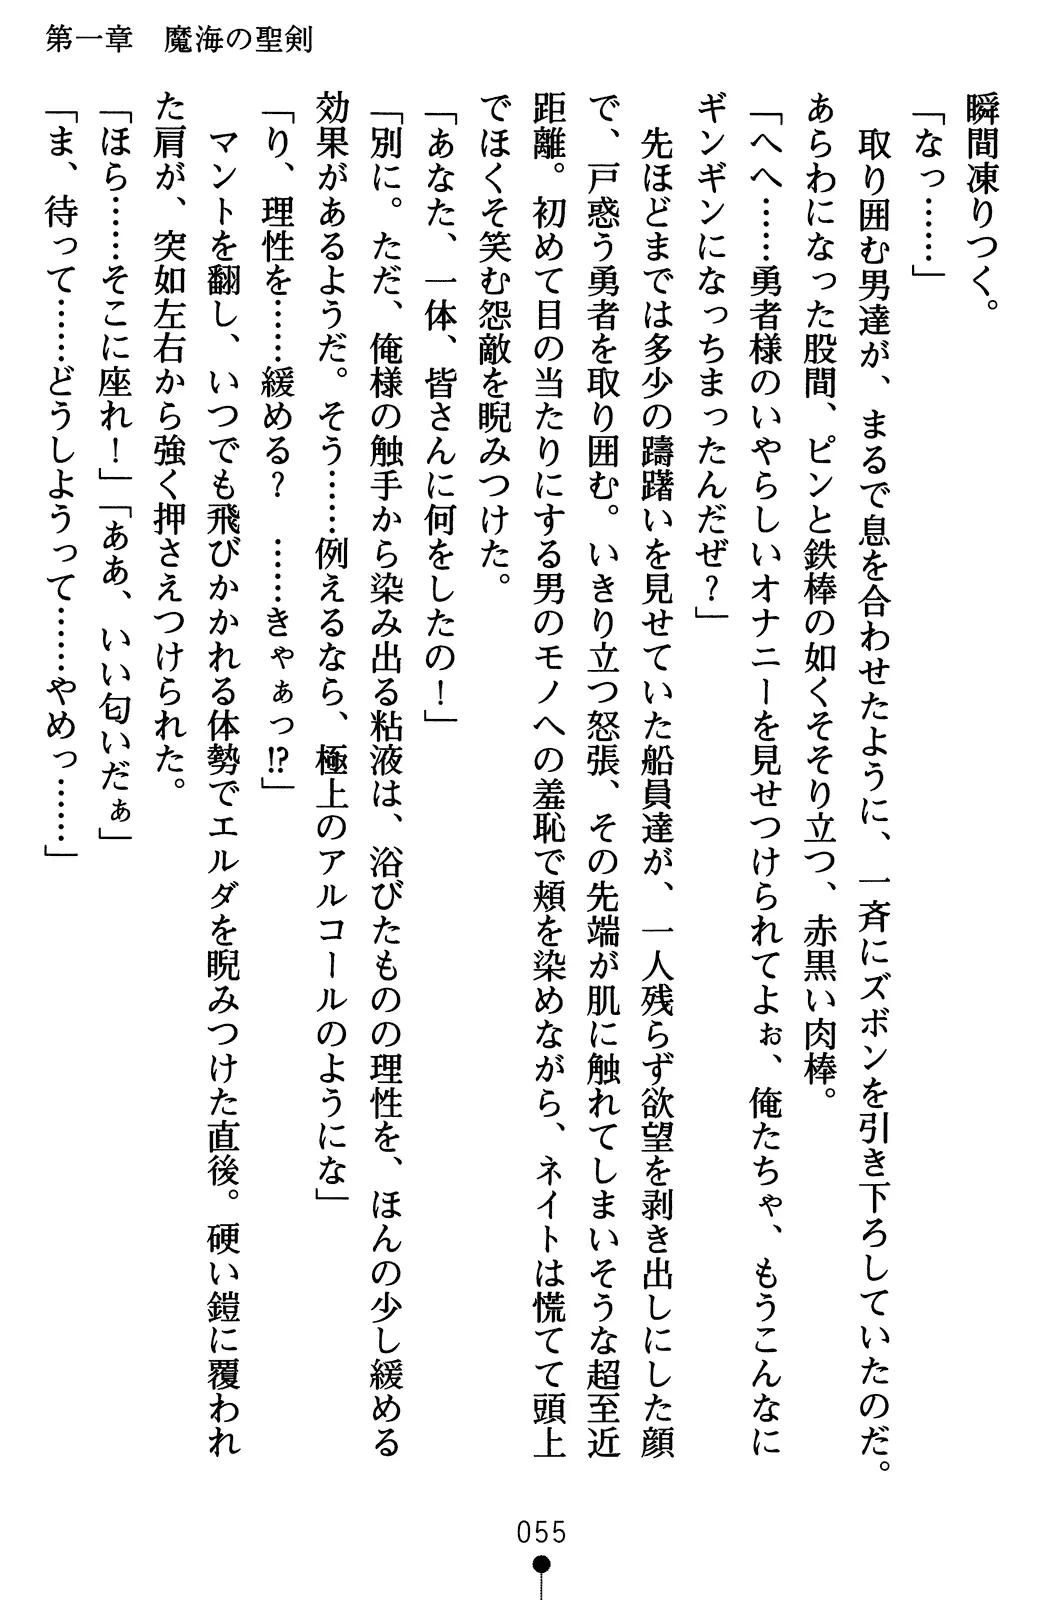 第一章　魔海の聖剣
瞬間凍りつく。
「なっ……」
　取り囲む男達が、まるで息を合わせたように、一斉にズボンを引き下ろしていたのだ。
あらわになった股間、ピンと鉄棒の如くそそり立つ、赤黒い肉棒。
「へへ……勇者様のいやらしいオナニーを見せつけられてよぉ、俺たちゃ、もうこんなに
ギンギンになっちまったんだぜ？」
　先ほどまでは多少の躊躇いを見せていた船員達が、一人残らず欲望を剥き出しにした顔
で、戸惑う勇者を取り囲む。いきり立つ怒張、その先端が肌に触れてしまいそうな超至近
距離。初めて目の当たりにする男のモノへの羞恥で頬を染めながら、ネイトは慌てて頭上
でほくそ笑む怨敵を睨みつけた。
「あなた、一体、皆さんに何をしたの！」
「別に。ただ、俺様の触手から染み出る粘液は、浴びたものの理性を、ほんの少し緩める
効果があるようだ。そう……例えるなら、極上のアルコールのようにな」
「り、理性を……緩める？　……きゃぁっ!?」
　マントを翻し、いつでも飛びかかれる体勢でエルダを睨みつけた直後。硬い鎧に覆われ
た肩が、突如左右から強く押さえつけられた。
「ほら……そこに座れ！」「ああ、いい匂いだぁ」
「ま、待って……どうしようって……やめっ……」
055